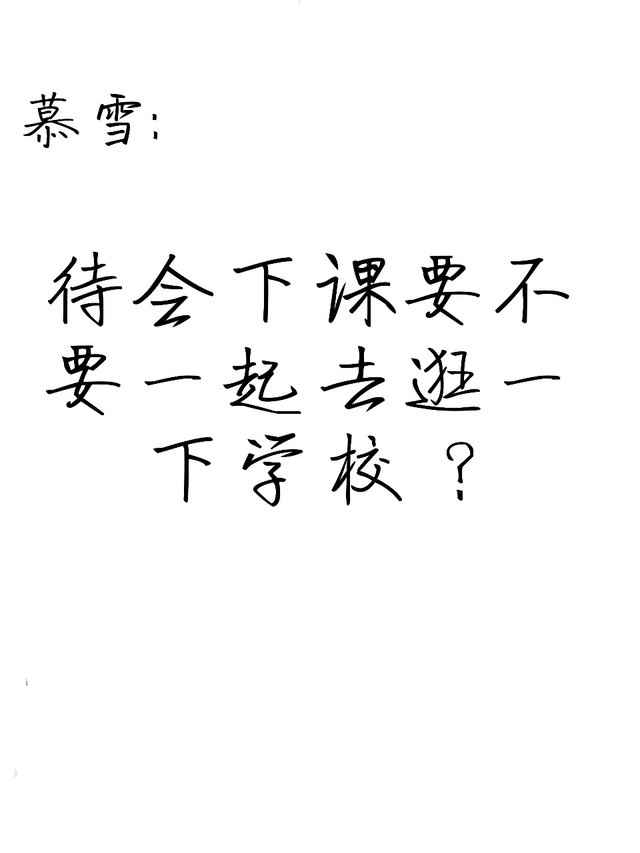 慕雪:
待会下课要不
要一起去逛一
下学校?